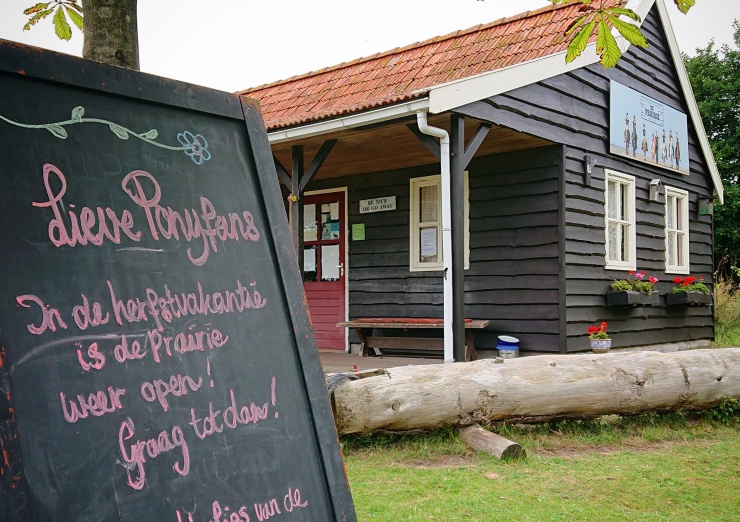 Lieve Ponyfans
In de herfstvakantie
is de Prairie
weer open!
Graag tot dan!
van de
BE NICE
OR GO AWAY
PRAIRIE